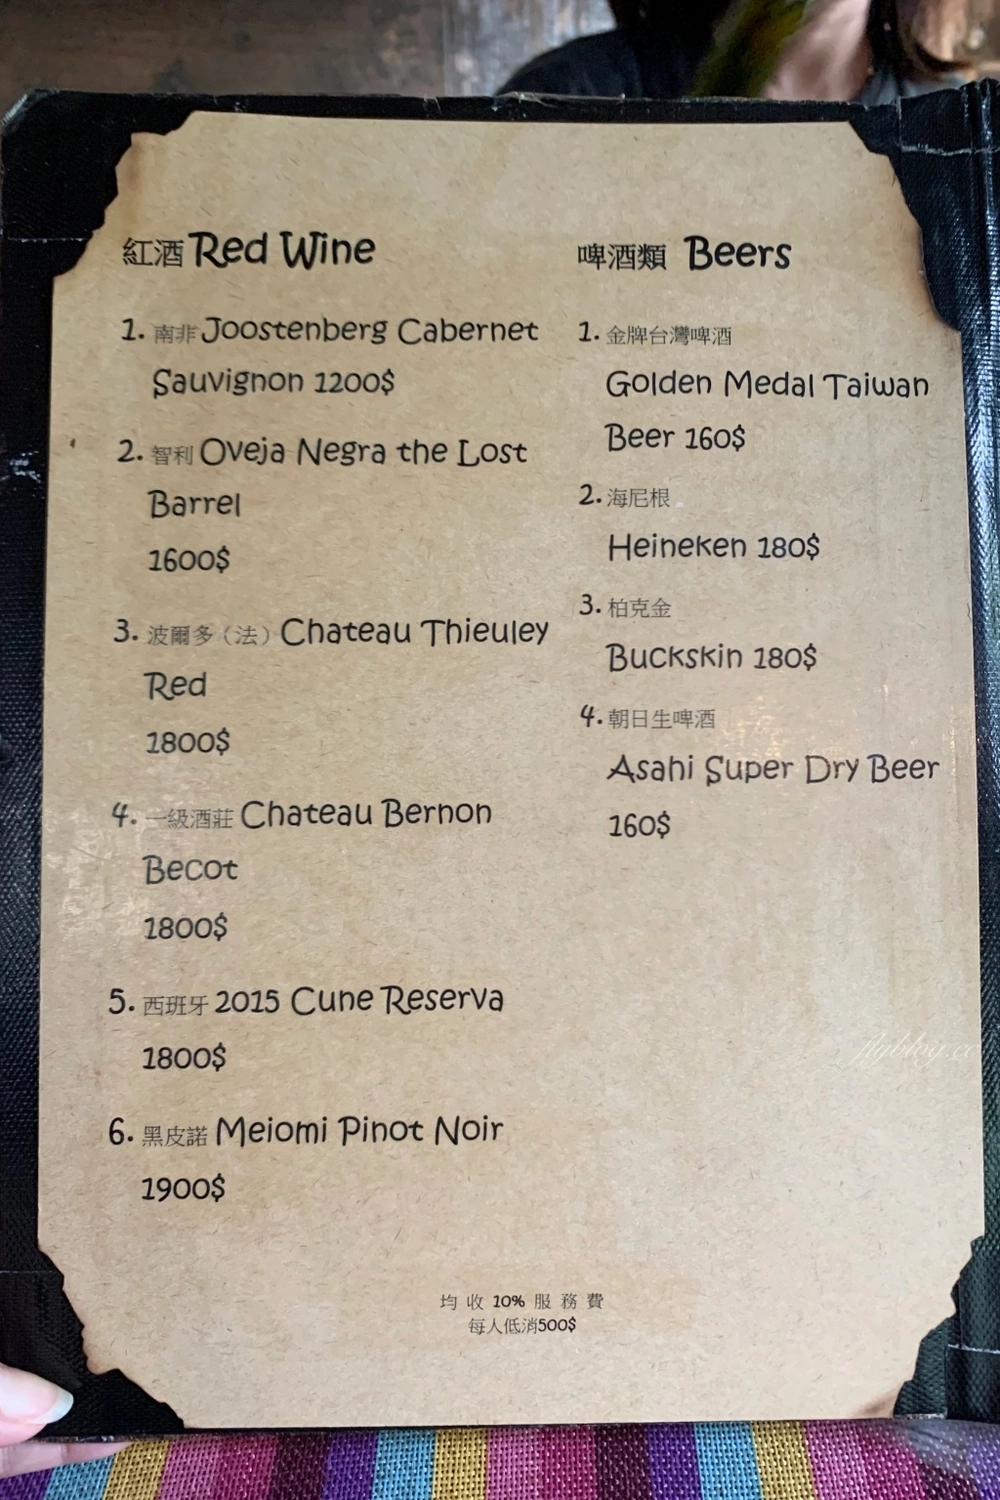 紅酒 Red Wine
1. 南非 Joostenberg Cabernet
Sauvignon 1200$
2. 智利 Oveja Negra the Lost
Barrel
1600$
3. 波爾多（法） Chateau Thieuley
Red
1800$
4. 一級酒莊 Chateau Bernon
Becot
1800$
5. 西班牙 2015 Cune Reserva
1800$
6. 黑皮諾 Meiomi Pinot Noir
1900$
啤酒類 Beers
1. 金牌台灣啤酒
Golden Medal Taiwan
Beer 160$
2. 海尼根
Heineken 180$
3. 柏克金
Buckskin 180$
4. 朝日生啤酒
Asahi Super Dry Beer
160$
均 收 10% 服 務 費
每人低消500$